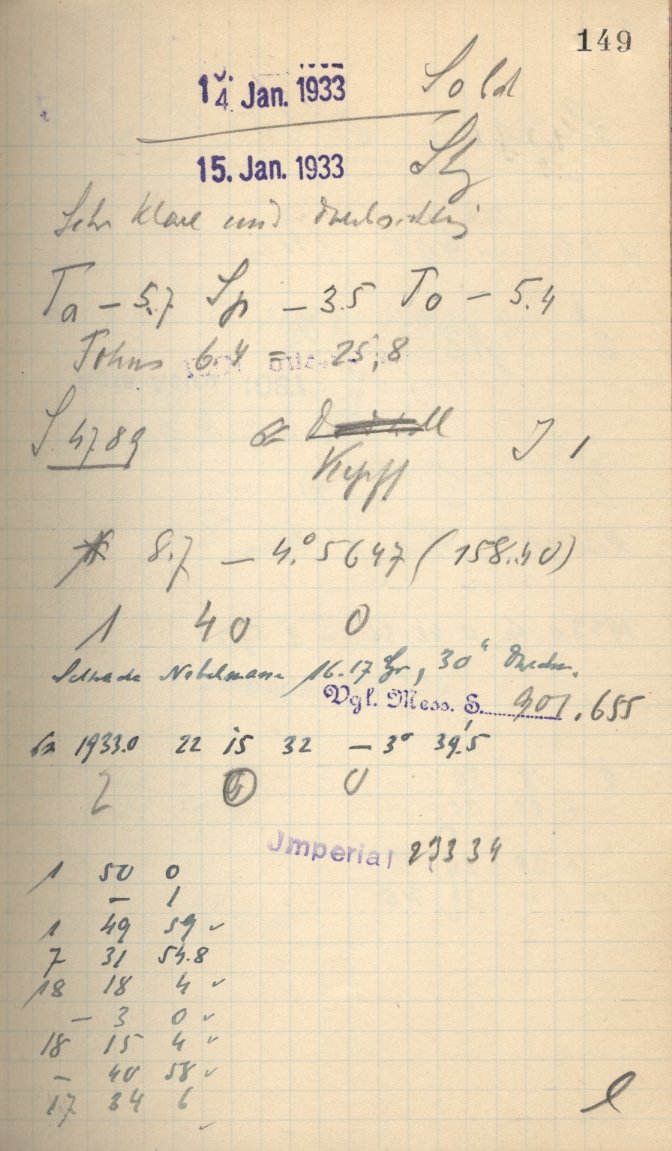 149
14 Jan. 1933
15. Jan. 1933
Sehr klare und durchsichtig
Ta – 5.7 Sp – 3.5 To – 5.4
Fokus 6.4 = 25,8
S 4789 J 1
Kopff
* 8.7 – 4.°5647 (158.40)
1 40 0
Schwache Nebelmasse 16.17 Gr, 30" Durchm.
Vgl. Mess. S. 901.655
1933.0 22 15 32 – 3° 39,5
2 0 0
Imperial 23334
1 50 0
– 1
1 49 59 ✓
7 31 54.8
18 18 4 ✓
– 3 0 ✓
18 15 4 ✓
– 40 58 ✓
17 34 6